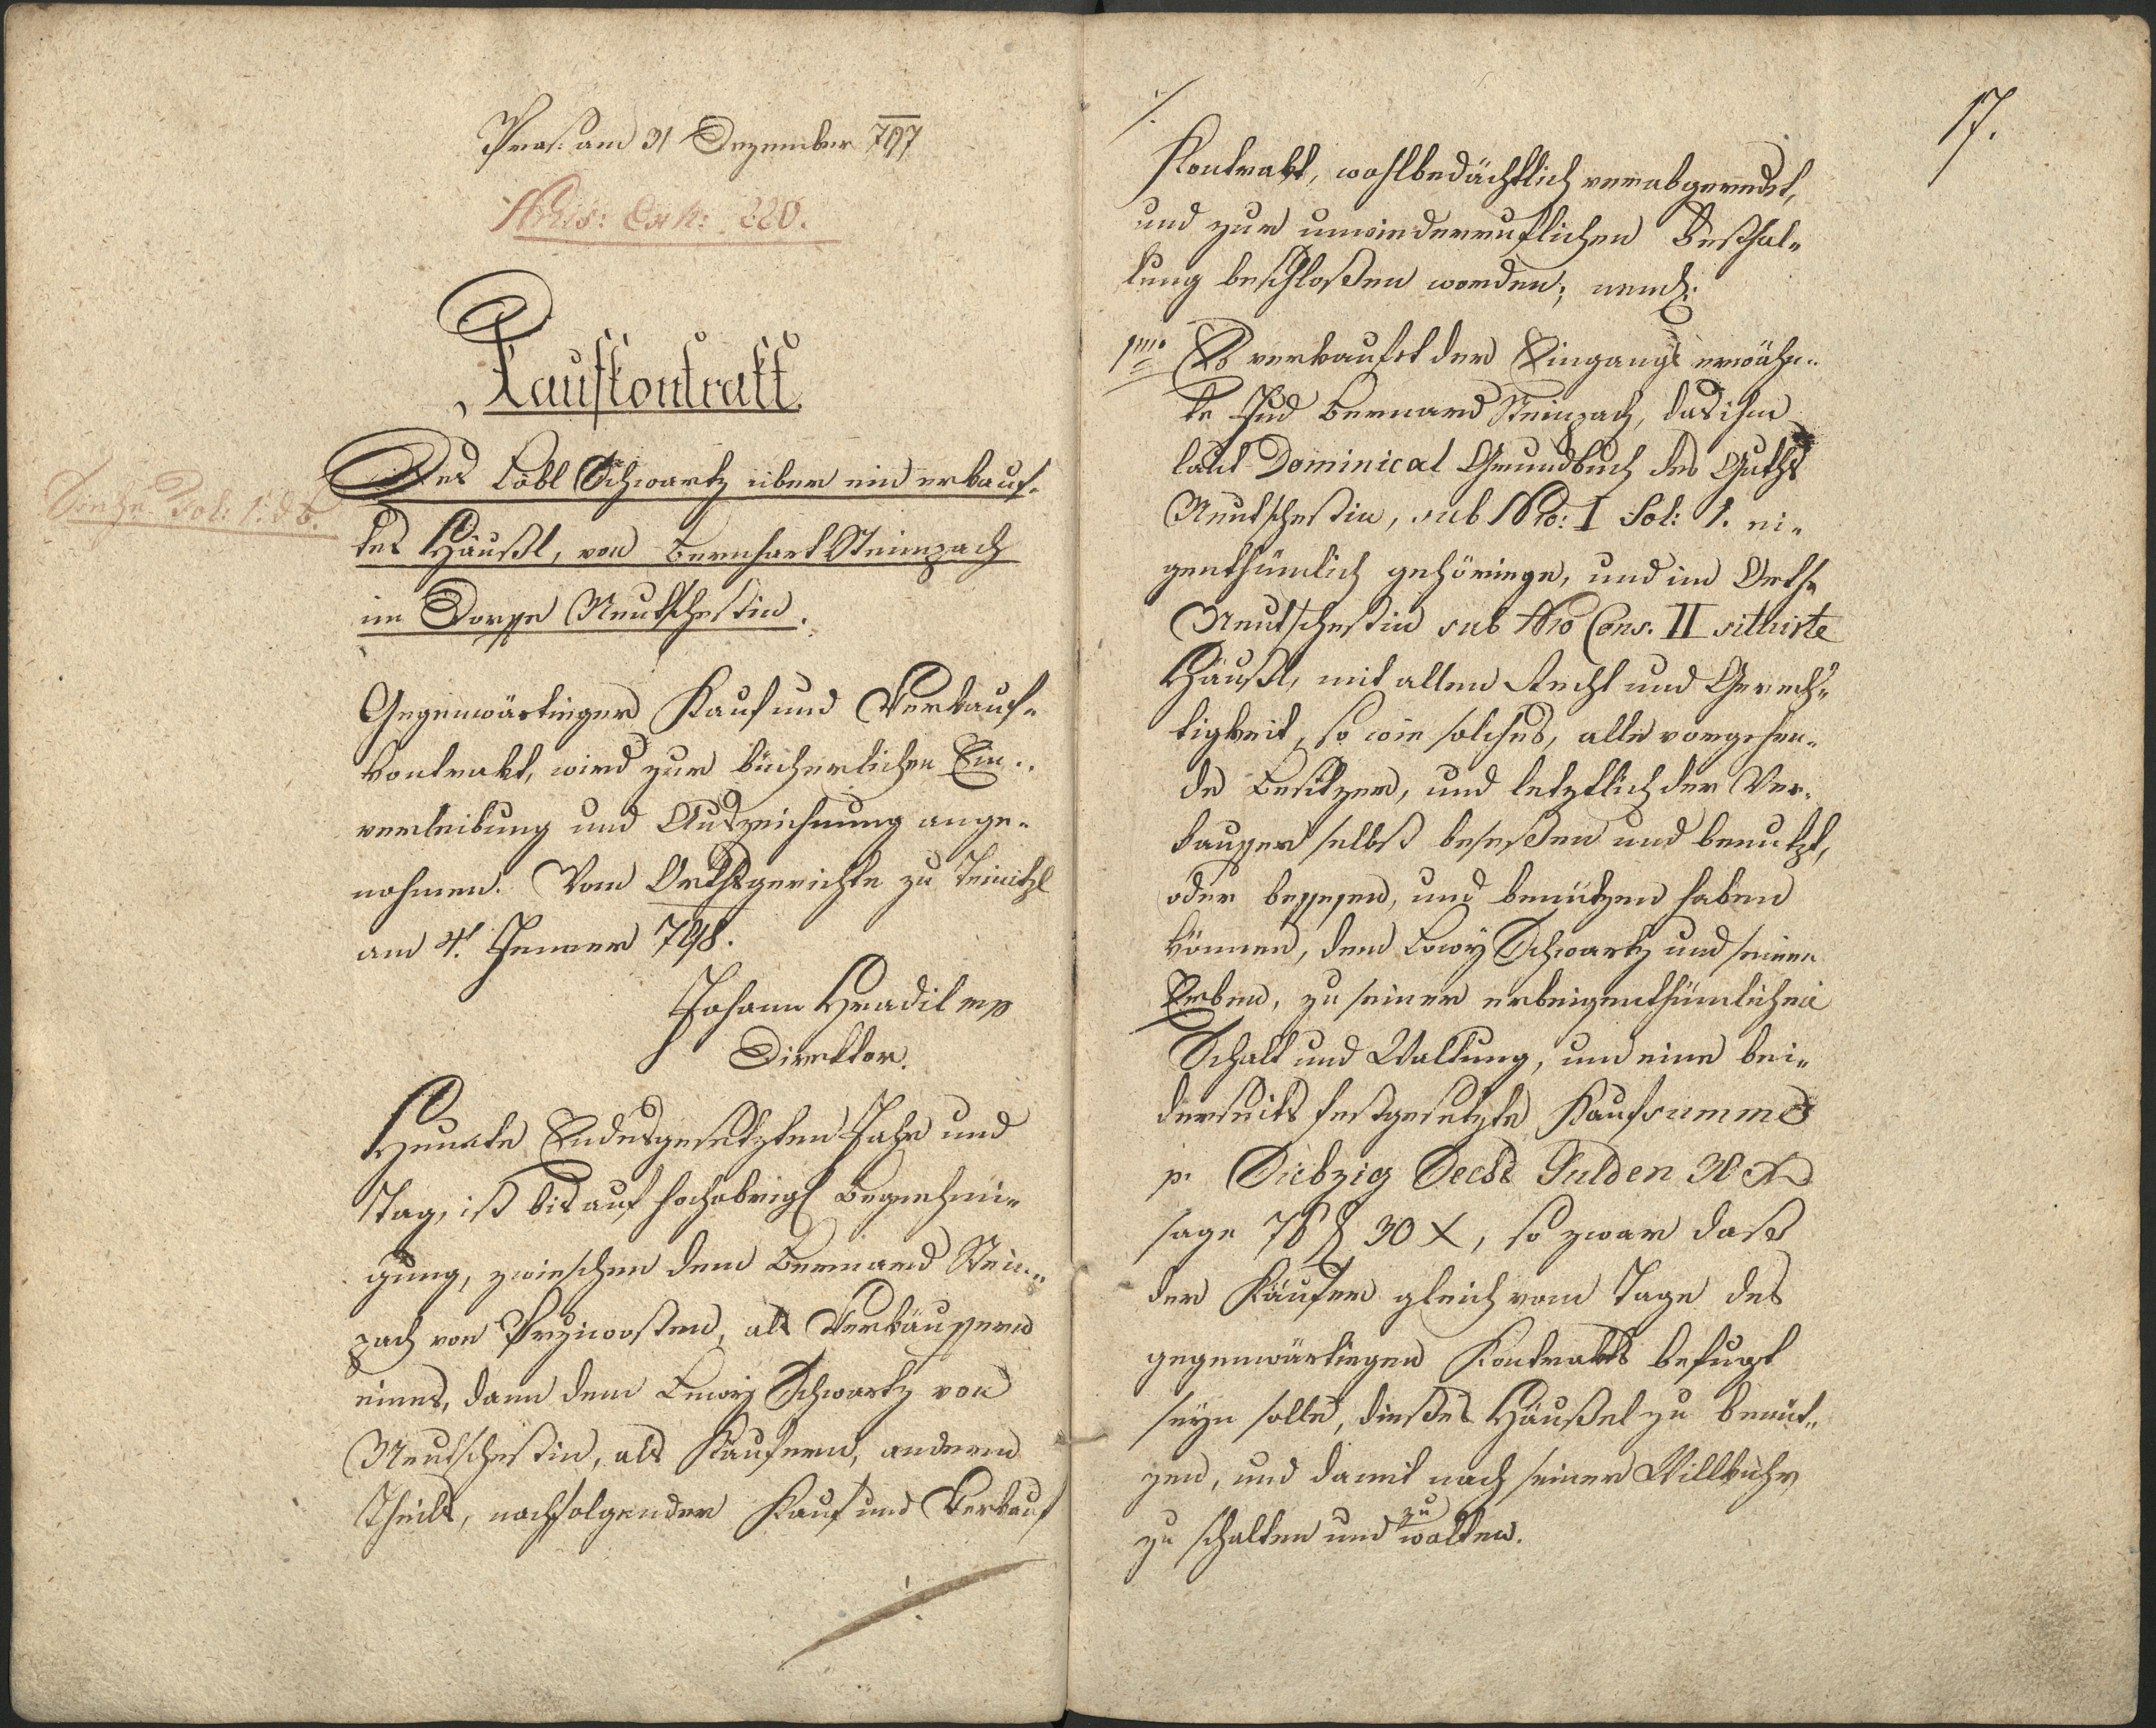 Pras: am 31 Dezember 797
Nris: Exh: 220.
Kaufkontrakt
Des Löbl Schwartz über ein erkauf-
tes Häußl, von Bernhart Steinzach
im Dorfe Neutschestin.
Fol: 1. d b.
Gegenwärtieger Kauf und Verkauf-
kontrakt, wird zur bücherlichen Ein-
verleibung und Aufzeichnung ange-
nohmen. Vom Orthsgerichte zu Teinitzl
am 4t Jenner 798.
Johann Hradil mp
Direktor.
Heunte Endesgesetzten Jahr und
Tag, ist bis auf hochobrigl Begnehmi-
gung, zwieschen dem Bernard Stein-
zach von Prziwosten, als Verkäuffern
eines, dann dem Lewy Schwartz von
Neutschestin, als Kaufern, andern
Theils, nachfolgender Kauf und Verkauf
./.
17.
Kontrakt, wohlbedächtlich verabgeredet,
und zur unwiederruflichen Festhal-
tung beschloßen worden; neml:
1mo Es verkaufet der Eingangs erwähn-
te Jud Bernard Steinzach, das ihm
laut Dominical Grundbuch des Guths
Neutschestin, sub Nro: I Fol: 1. ei-
genthümlich gehöriege, und im Orthe
Neutschestin sub Nro Cons. II situirte
Häußl, mit allen Recht und Gerech-
tigkeit, so wie solches, alle vorgehen-
de Besitzer, und letztlich der Ver-
kaufer selbst beseßen und benutzt,
oder besesen, und benützen haben
können, dem Lowy Schwartz und seinen
Erben, zu seiner erbeigenthümlichen
Schalt und Waltung, um eine bei-
derseits festgesetzte Kaufsumme
pr Siebzig Sechs Gulden 30 Xr
sage 76 f 30 X, so zwar daß
der Käufer gleich vom Tage des
gegenwärtiegen Kontrakts befugt
seyn solle, dießes Häußel zu benüt-
zen, und damit nach seiner Willkuhr
zu schalten und zu walten.